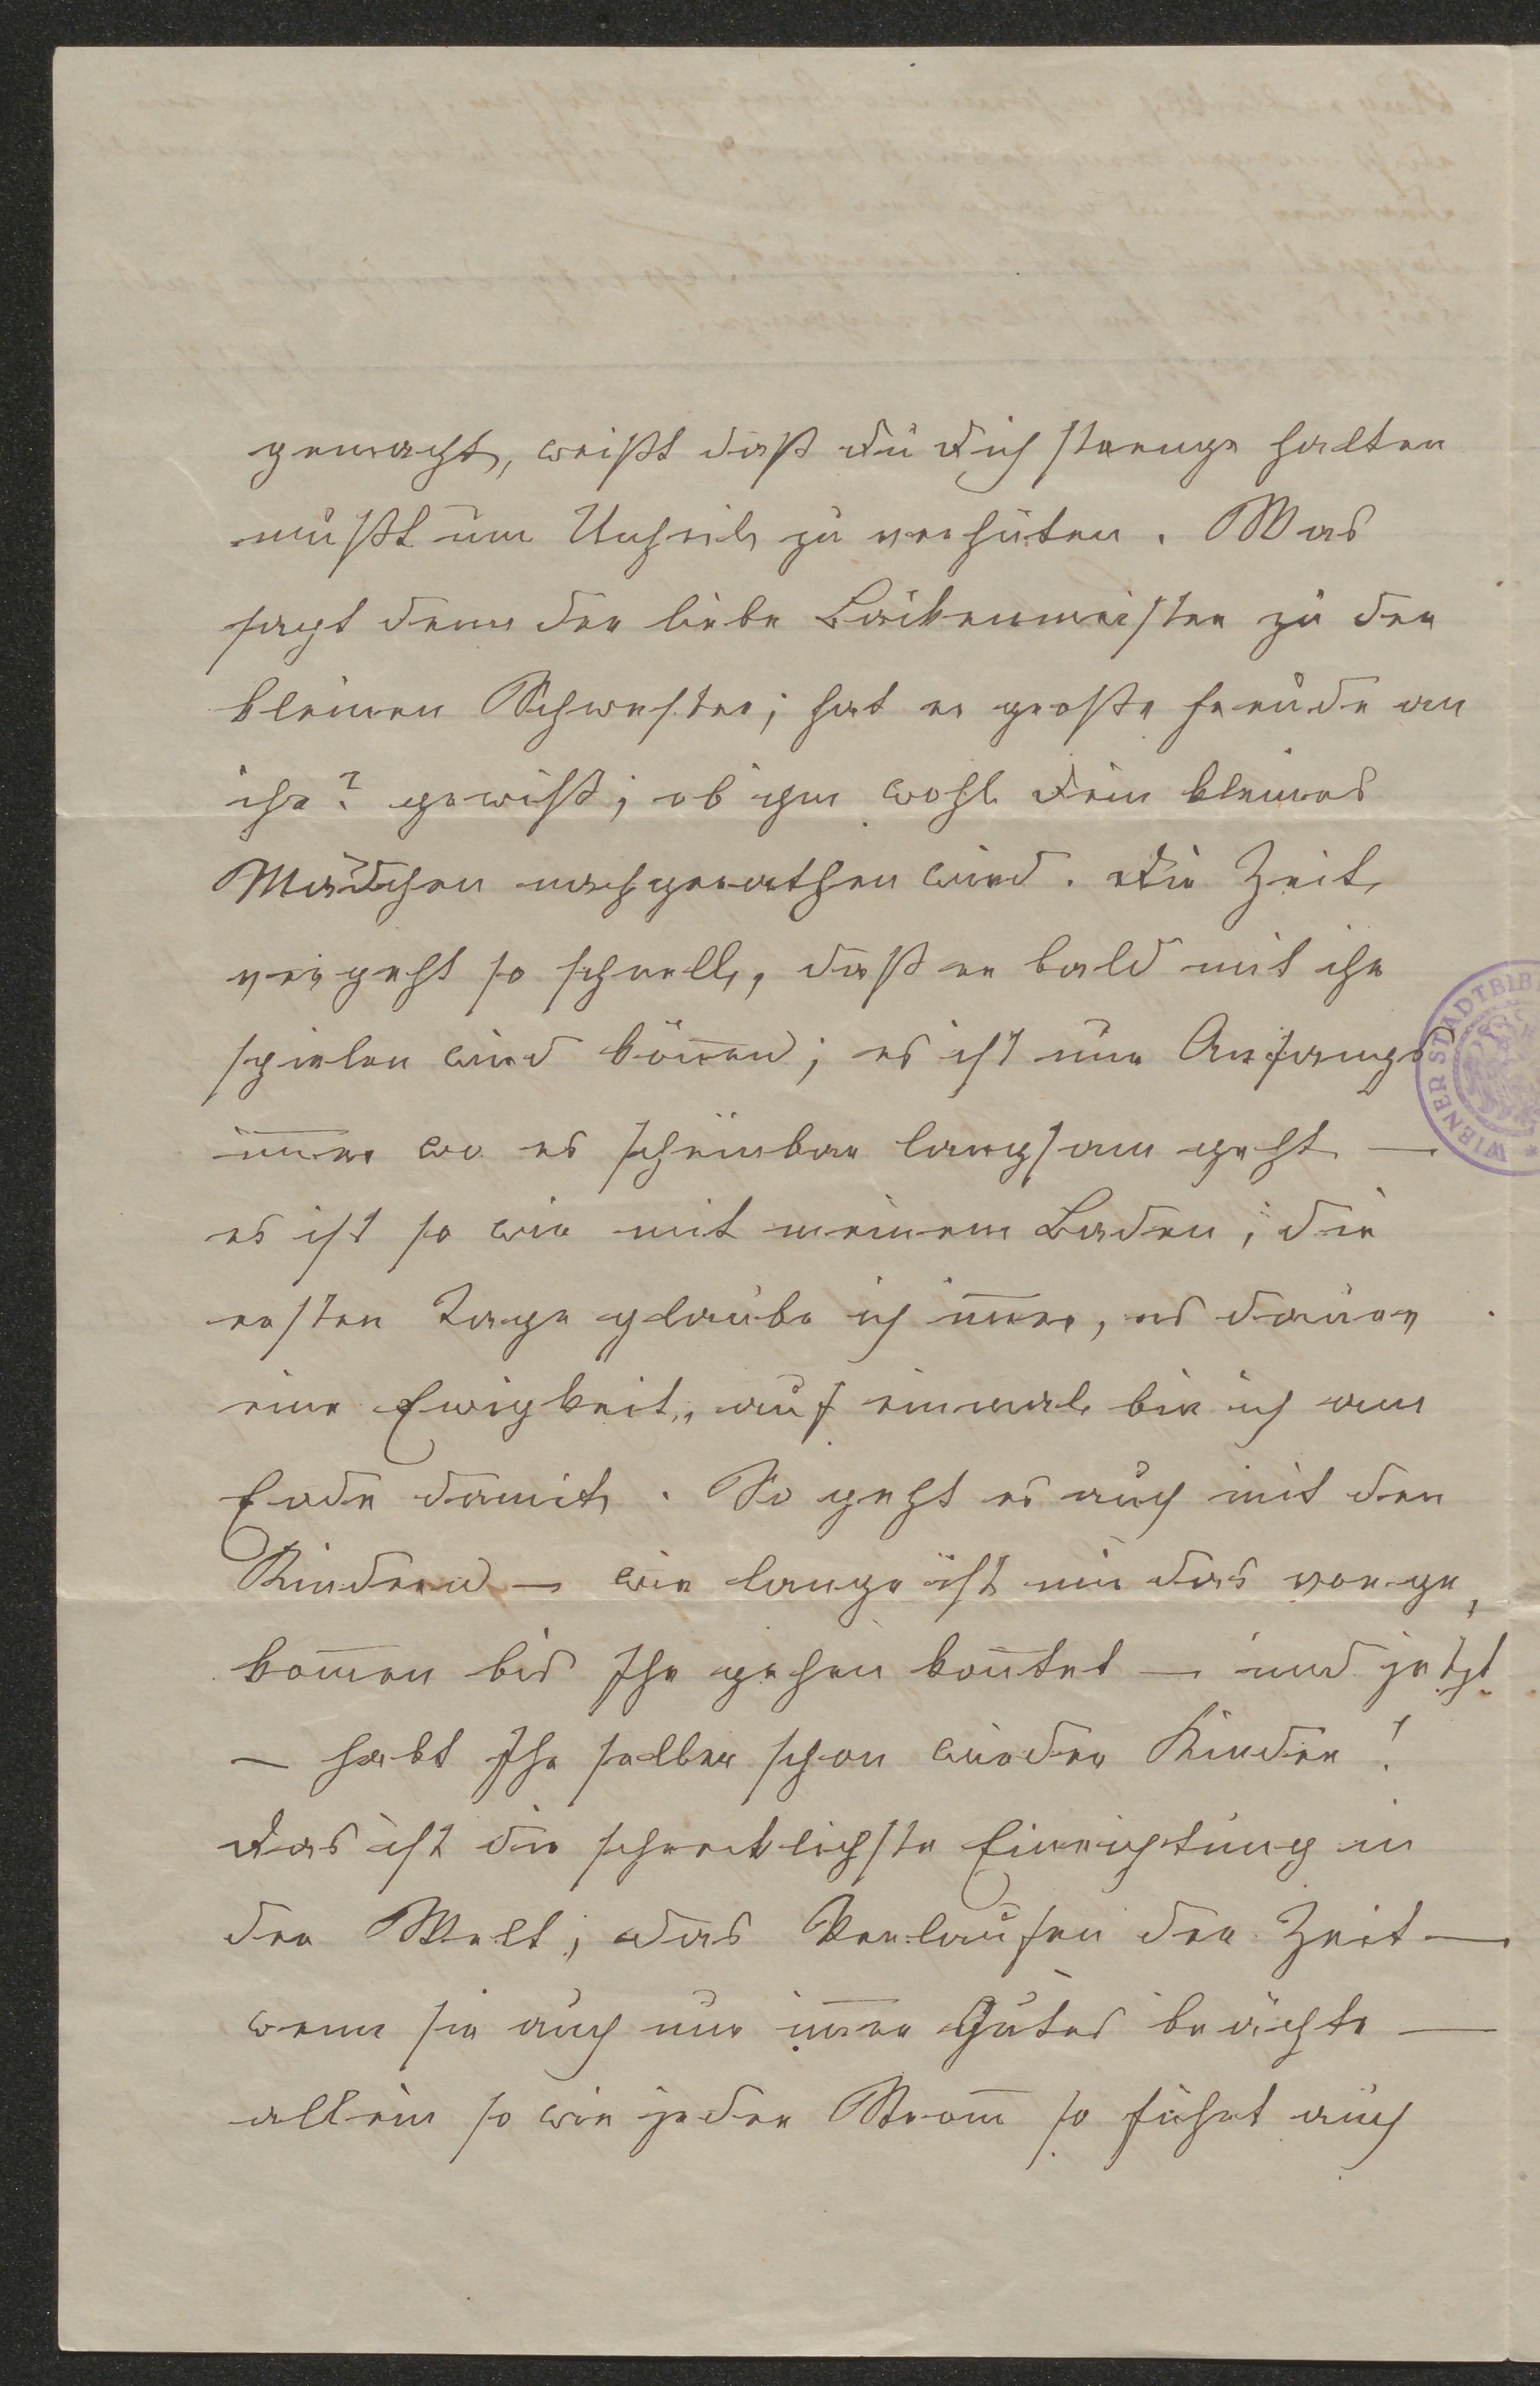 gemacht, weißt daß Du Dich strenge halten
mußt um Unheil zu verhüten. Was
sagt denn der liebe Bäckermeister zu der
kleinen Schwester; hat er große Freude an
ihr? gewiß; ob ihm wohl Dein kleines
Mädchen nachgerathen wird. Die Zeit
vergeht so schnell, daß er bald mit ihr
spielen wird könen; es ist nur Anfangs
imer wo es scheinbar langsam geht —
es ist so wie mit meinem Baden; die
ersten Tage glaube ich imer, es dauere
eine Ewigkeit, auf einmal bin ich am
Ende damit. So geht es auch mit den
Kindern — wie lange ist mir das vorge,
komen bis Ihr gehen kontet — und jetzt
— habt Ihr selber schon wieder Kinder!
Das ist die schrecklichste Einrichtung in
der Welt, das Verlaufen der Zeit —
wenn sie auch nur imer Gutes brächte —
allein so wie jeder Strom so führt auch
WIENER STADTBIB